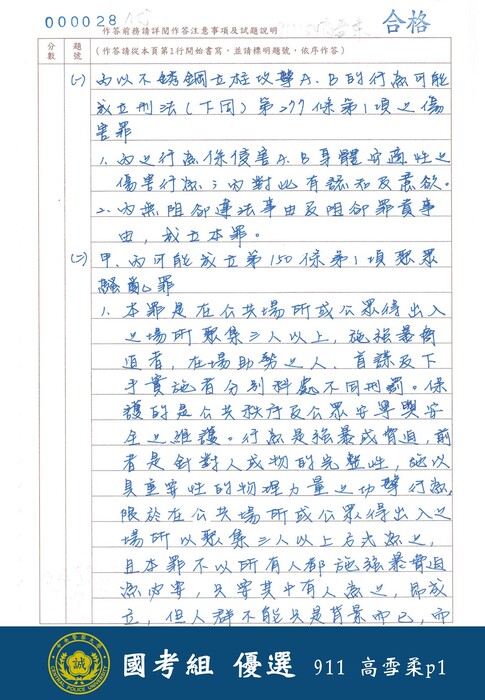 000028
作答前務請詳閱作答注意事項及試題說明
合格
分數
題號
(作答請從本頁第1行開始書寫,並請標明題號,依序作答)
(一) 丙以不銹鋼立柱攻擊A、B的行為可能
成立刑法(下同)第277條第1項之傷
害罪
1. 丙之行為係侵害A、B身體安適性之
傷害行為;丙對此有認知及意欲。
2. 丙無阻卻違法事由及阻卻罪責事
由,成立本罪。
(二) 甲、丙可能成立第150條第1項聚眾
騷亂罪
1. 本罪是在公共場所或公眾得出入
之場所聚集三人以上,施強暴脅
迫者,在場助勢之人、首謀及下
手實施者分別科處不同刑罰。保
護的是公共秩序及公眾安寧與安
全之維護。行為是強暴或脅迫,前
者是針對人或物的完整性,施以
具重要性的物理力量之功擊行為,
限於在公共場所或公眾得出入之
場所以聚集三人以上方式為之,
且本罪不以所有人都施強暴脅迫
為必要,只要其中有人為之,即成
立,但人群不能只是背景而已,而
中央警察大學
誠
CENTRAL POLICE UNIVERSITY
國考組 優選 911 高雪柔p1